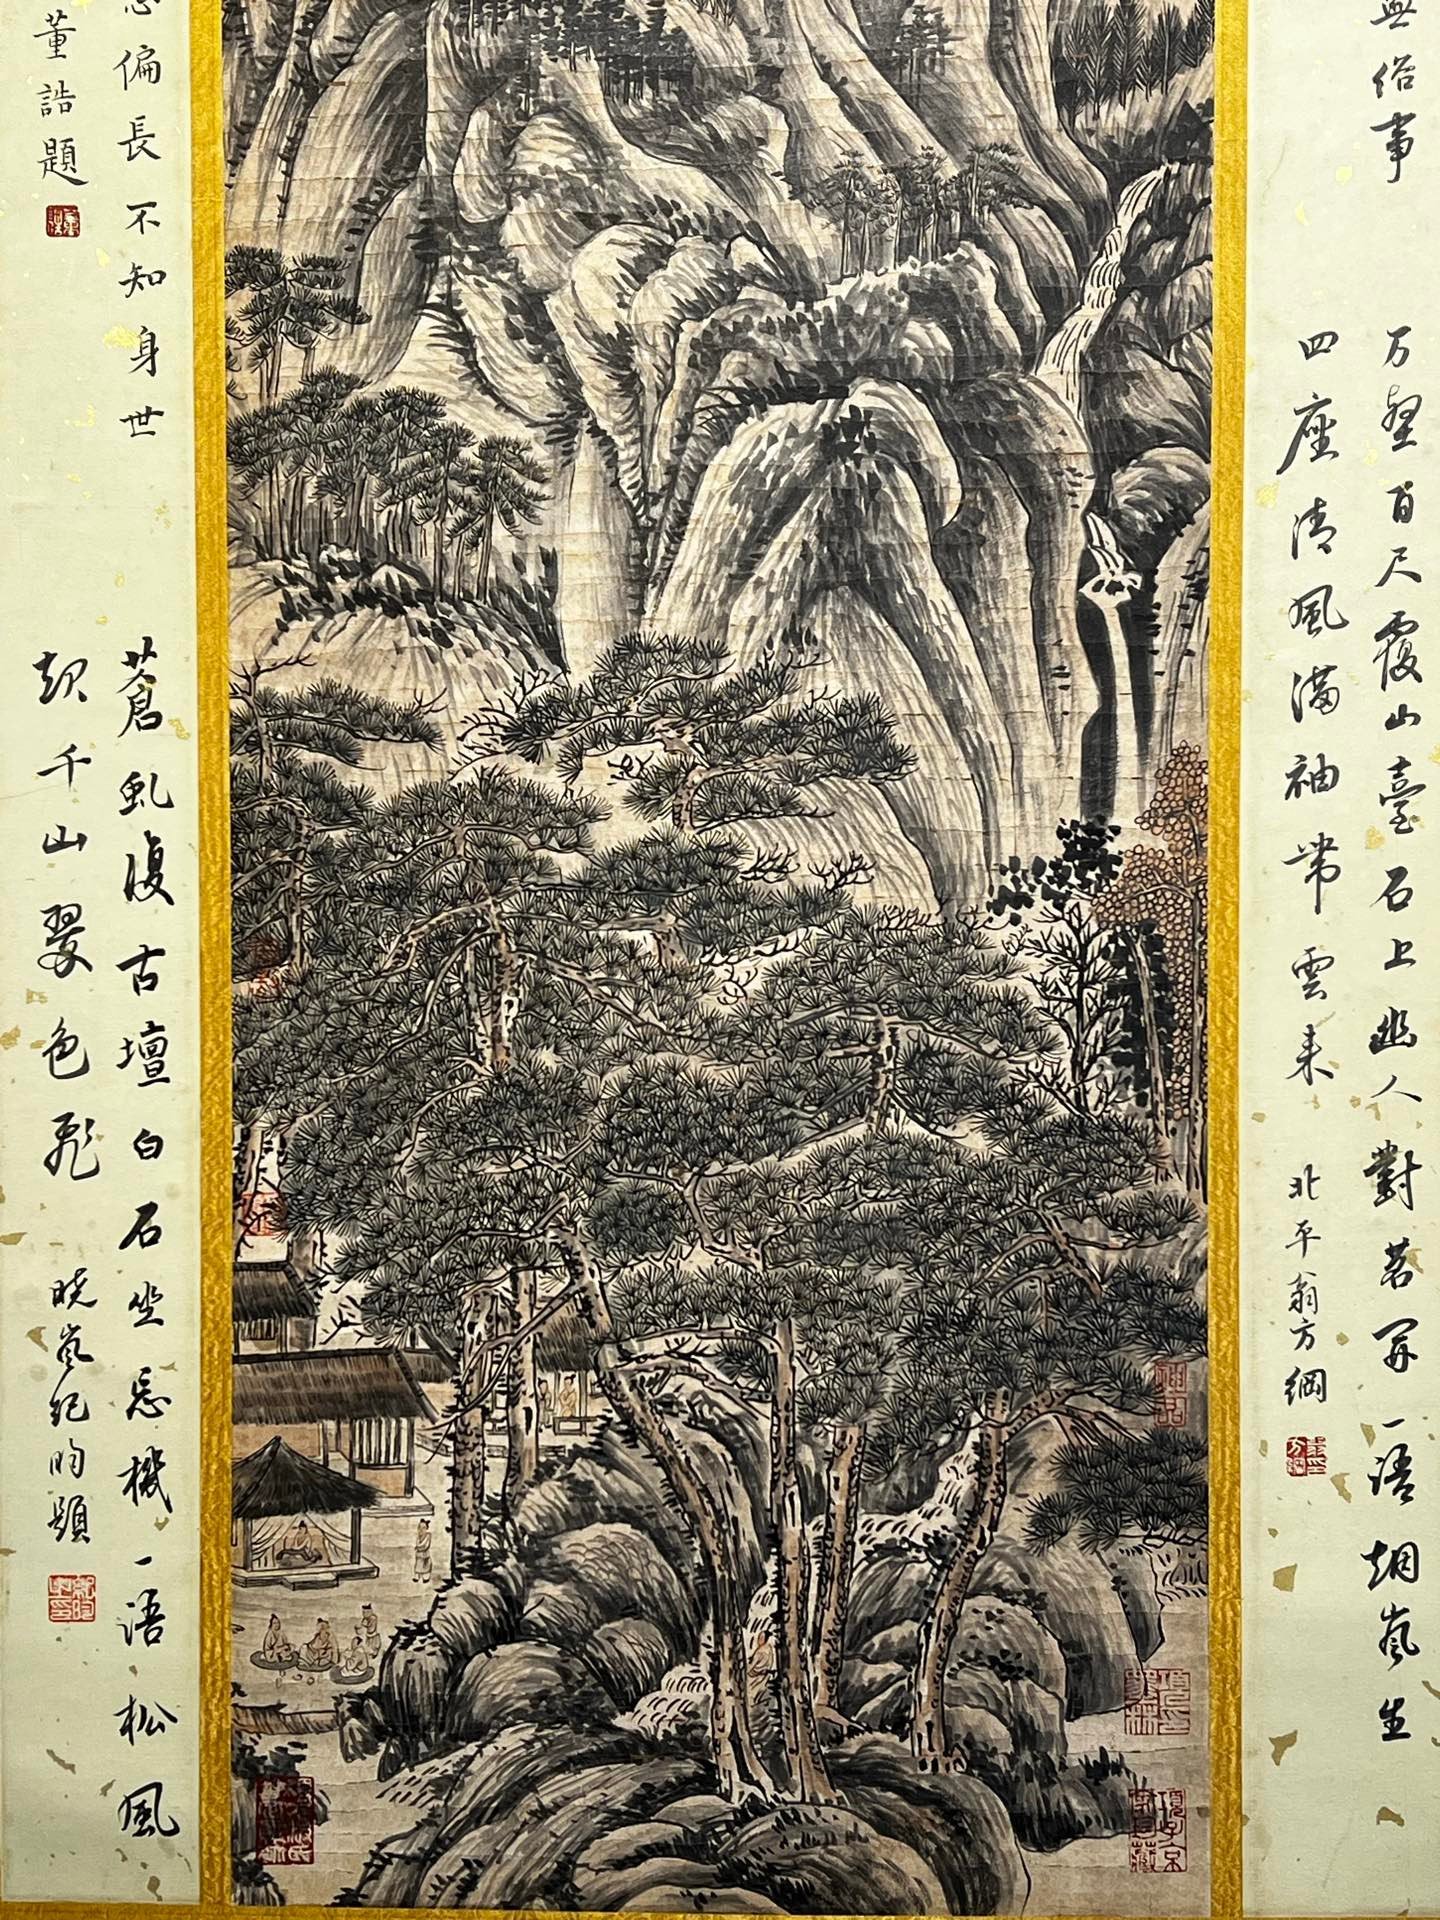 俗事
万壑百尺覆山臺石上幽人對茗開一語烟嵐生
四座清風滿袖帶雲來
北平翁方綱
偏長不知身世
董誥題
蒼虬復古壇白石坐忘機一語松風
起千山翠色飛
曉嵐紀昀題